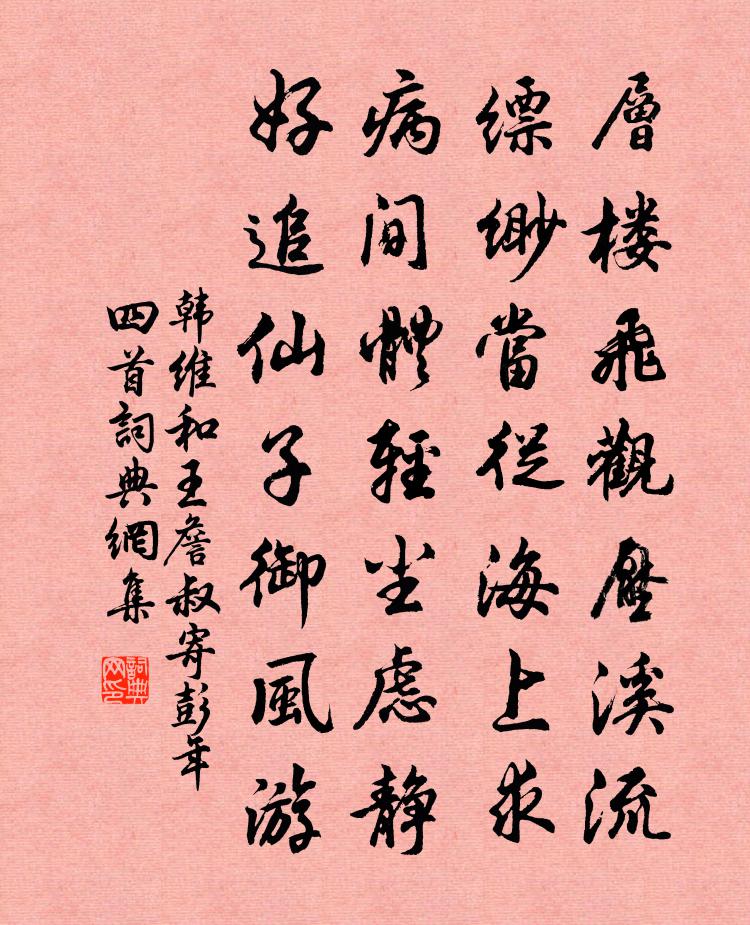 層楼飛觀壓溪流
缥缈當從海上求
病間體輕尘慮靜
好追仙子御風游
韩維和王詹叔寄彭年
四首詞典網集
詞典網印